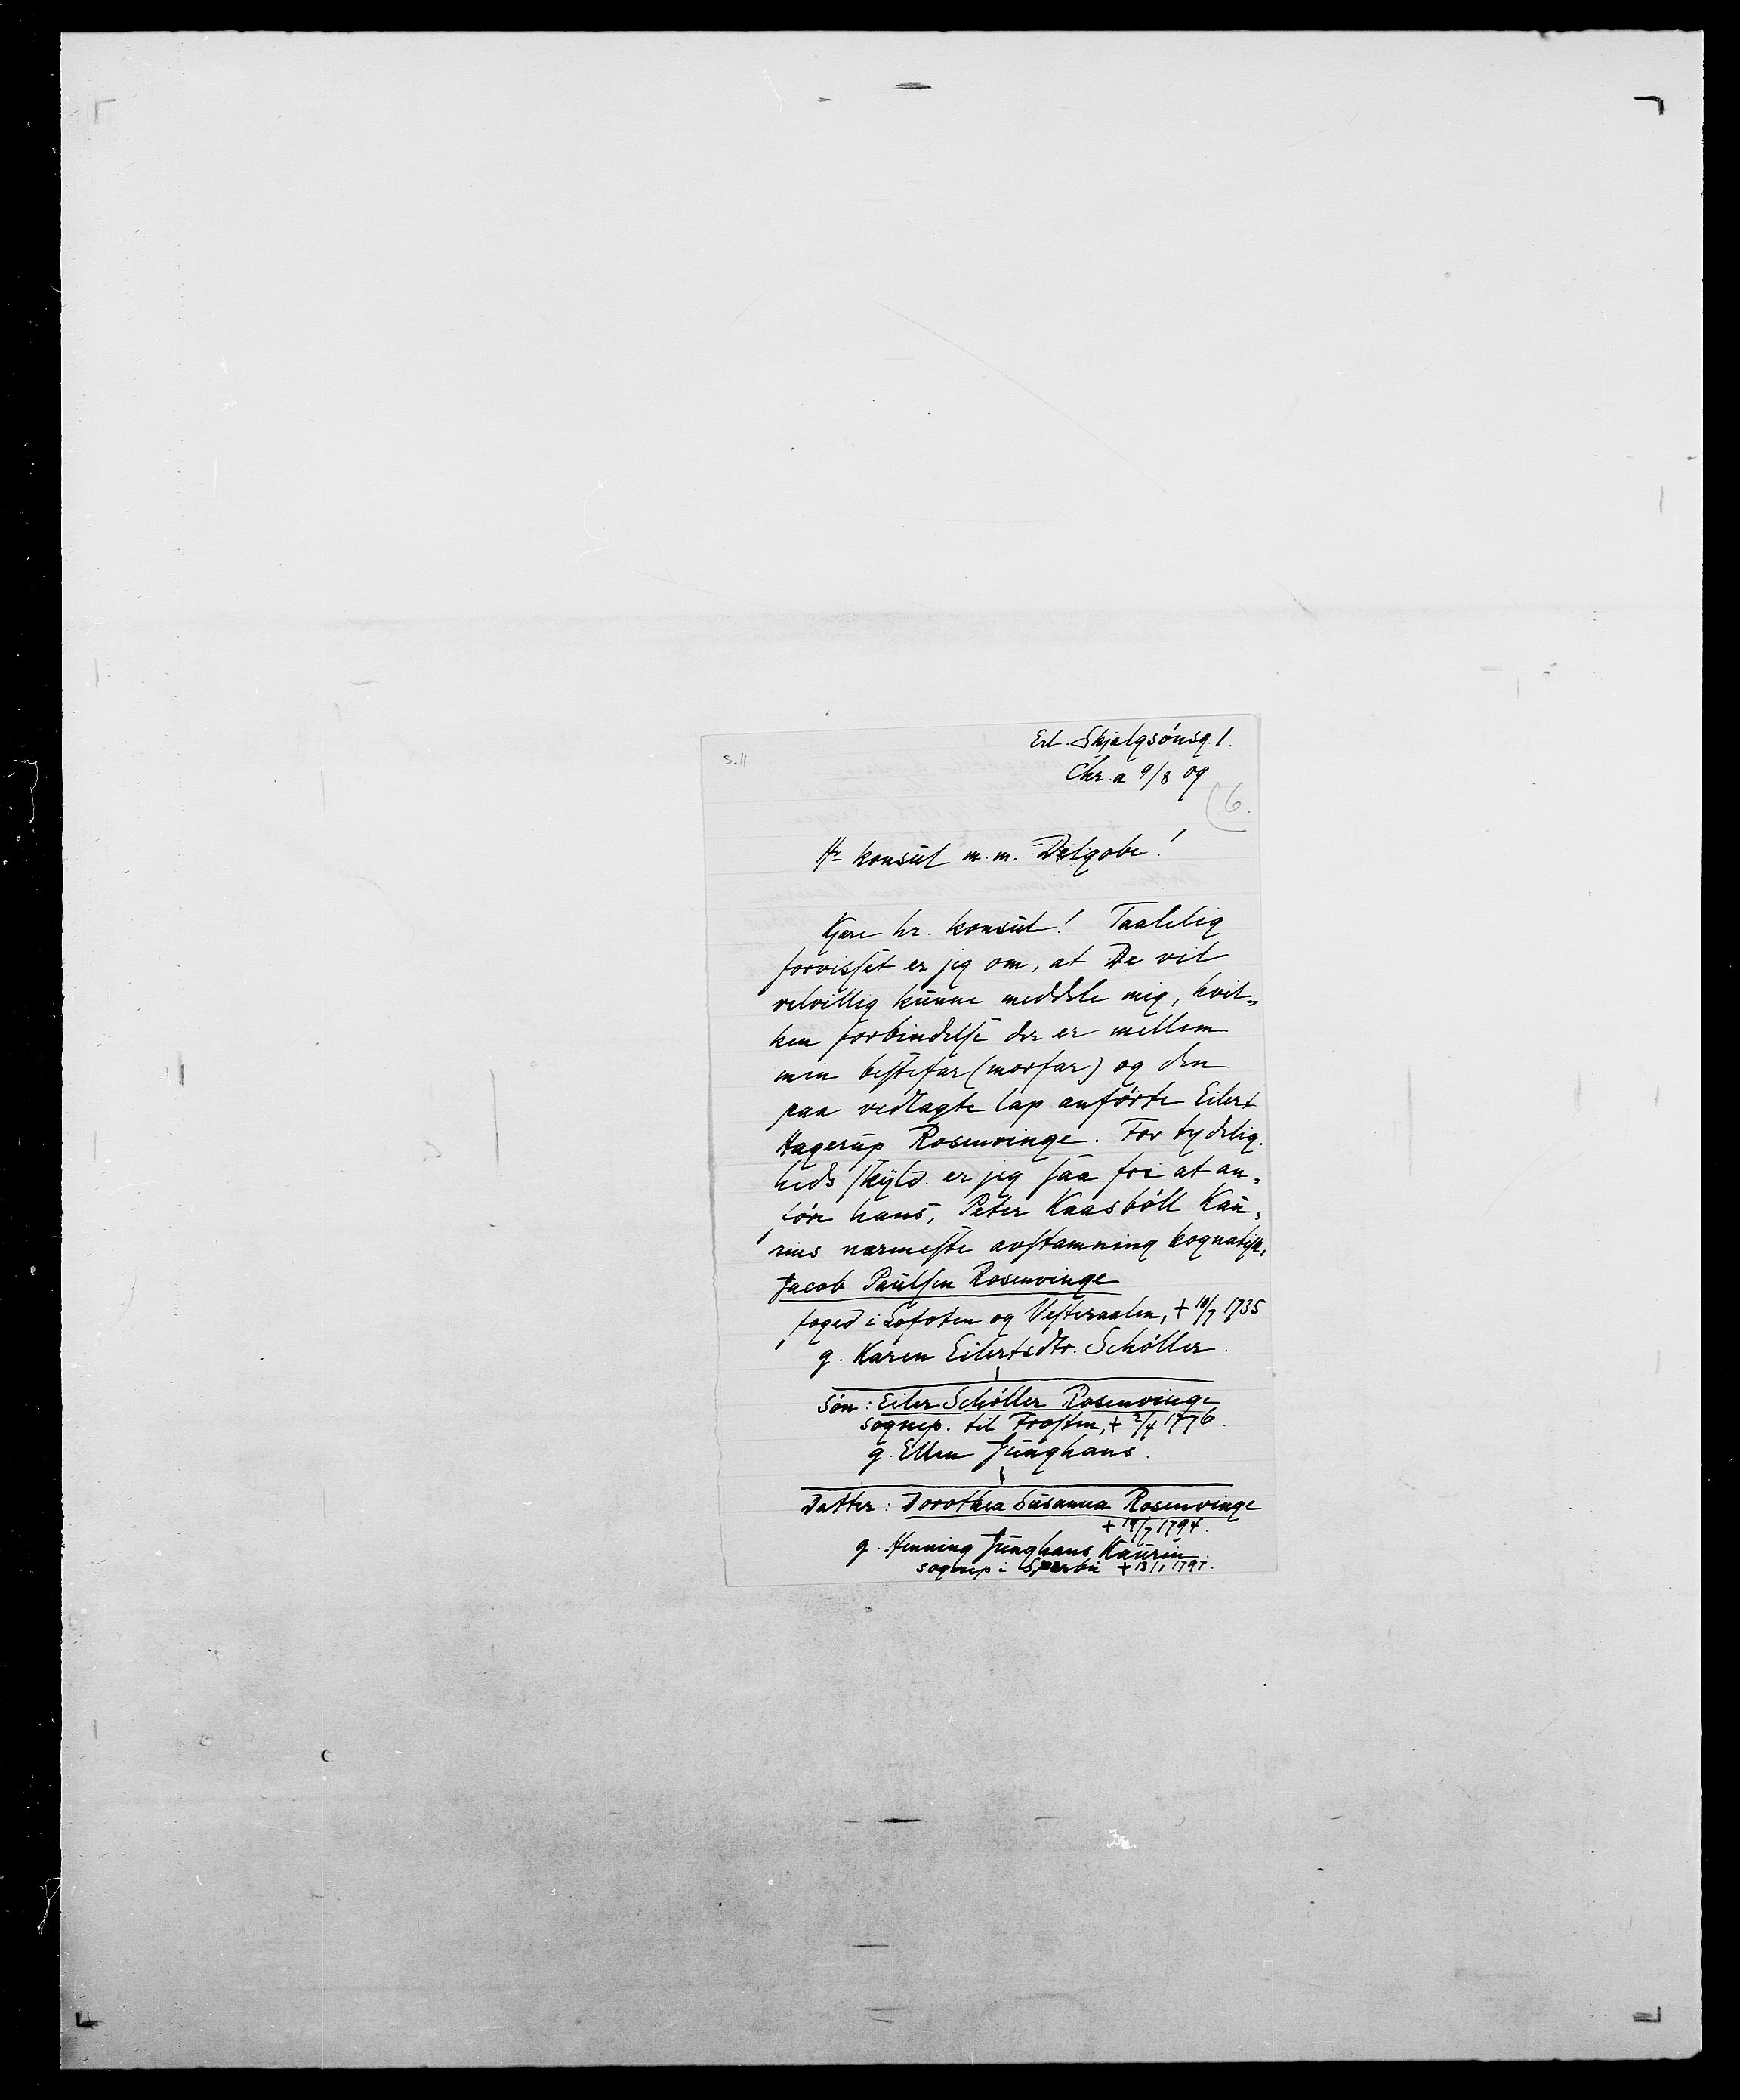 Erl. Skjalgsönsg. 1.
s. 11
Chr.a 9/8 09
(6.
Hr konsul m. m. Delgobe!
Kjære hr. konsul! Taalelig
forvisset er jeg om, at De vil
velvillig kunne meddele mig, hvil-
ken forbindelse der er mellem
min bestefar (morfar) og den
paa vedlagte lap anförte Eilert
Hagerup Rosenvinge. For tydelig-
heds skyld er jeg saa fri at an-
före hans, Peter Kaasböll Kau-
rins nærmeste avstamning kognatisk.
Jacob Paulsen Rosenvinge
foged i Lofoten og Vesteraalen, + 10/7 1735
g. Karen Eilertsdtr. Schöller.
Sön: Eiler Schöller Rosenvinge
sognep. til Frosten, + 2/4 1776.
g. Ellen Junghans.
Datter: Dorothea Susanna Rosenvinge
+ 19/7 1794.
g. Henning Junghans Kaurin
sognep i Sparbu + 13/1 1797.